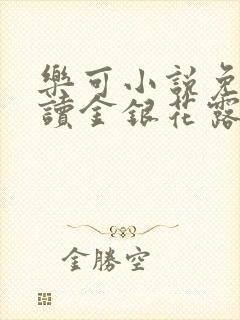 樂可小說免
讀金銀花露
金勝空